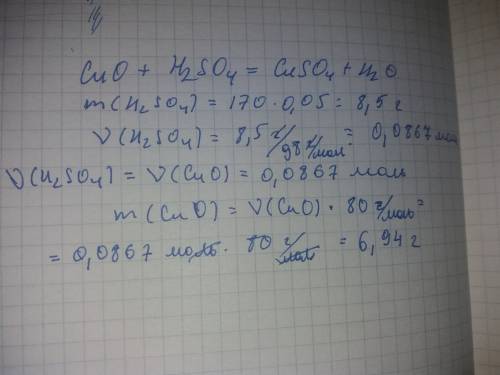 CuO + H₂SO₄ = CuSO₄ + H₂O
m(H₂SO₄) = 170 · 0,05 = 8,5 г
ν(H₂SO₄) = 8,5 г/98 г/моль = 0,0867 моль
ν(H₂SO₄) = ν(CuO) = 0,0867 моль
m(CuO) = ν(CuO) · 80 г/моль =
= 0,0867 моль · 80 г/моль = 6,94 г